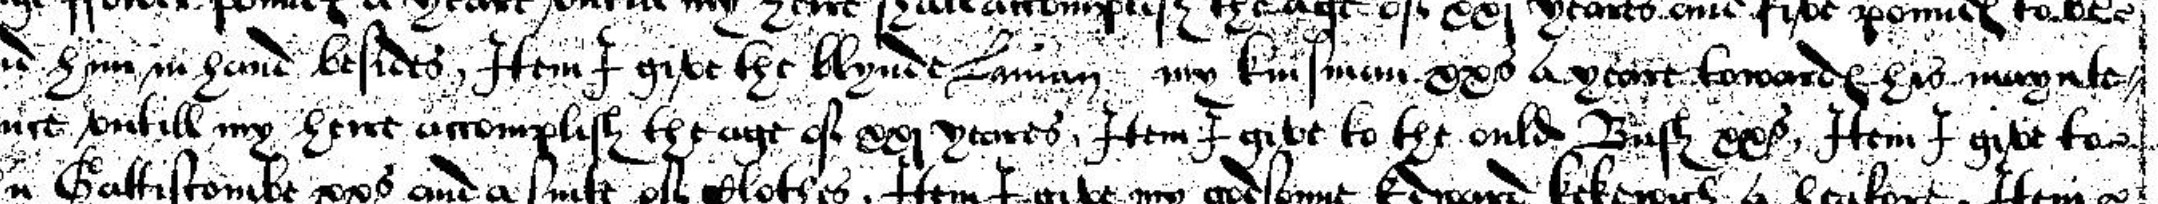 fower poundes a yeare untill my heire shall accomplish the age of xxj yeares and five poundes to be
him in hand besides, Item I give the blynde Laman my kinsman xxs a yeare towardes his maynte
untill my heire accomplish the age of xxj yeares, Item I give to the ould Bush xxs, Item I give to
Battiscombe xxs and a sute of clothes, Item I give my godsonne Edward kekewich a heafore, Item